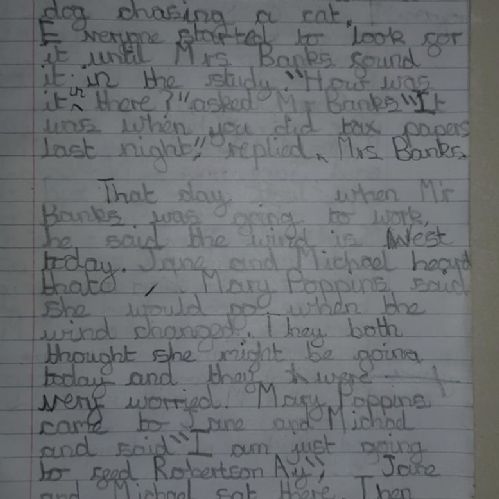 dog chasing a cat.
Everyone started to look for
it until Mrs Banks found
it in the study. "How was
it in there?" asked Mr Banks "It
was when you did tax papers
last night," replied Mrs Banks.
That day when Mr
Banks was going to work,
he said the wind is West
today. Jane and Michael heard
that Mary Poppins said
she would go when the
wind changed. They both
thought she might be going
today and they were
very worried. Mary Poppins
came to Jane and Michael
and said "I am just going
to feed Robertson Ay", Jane
and Michael sat there. Then